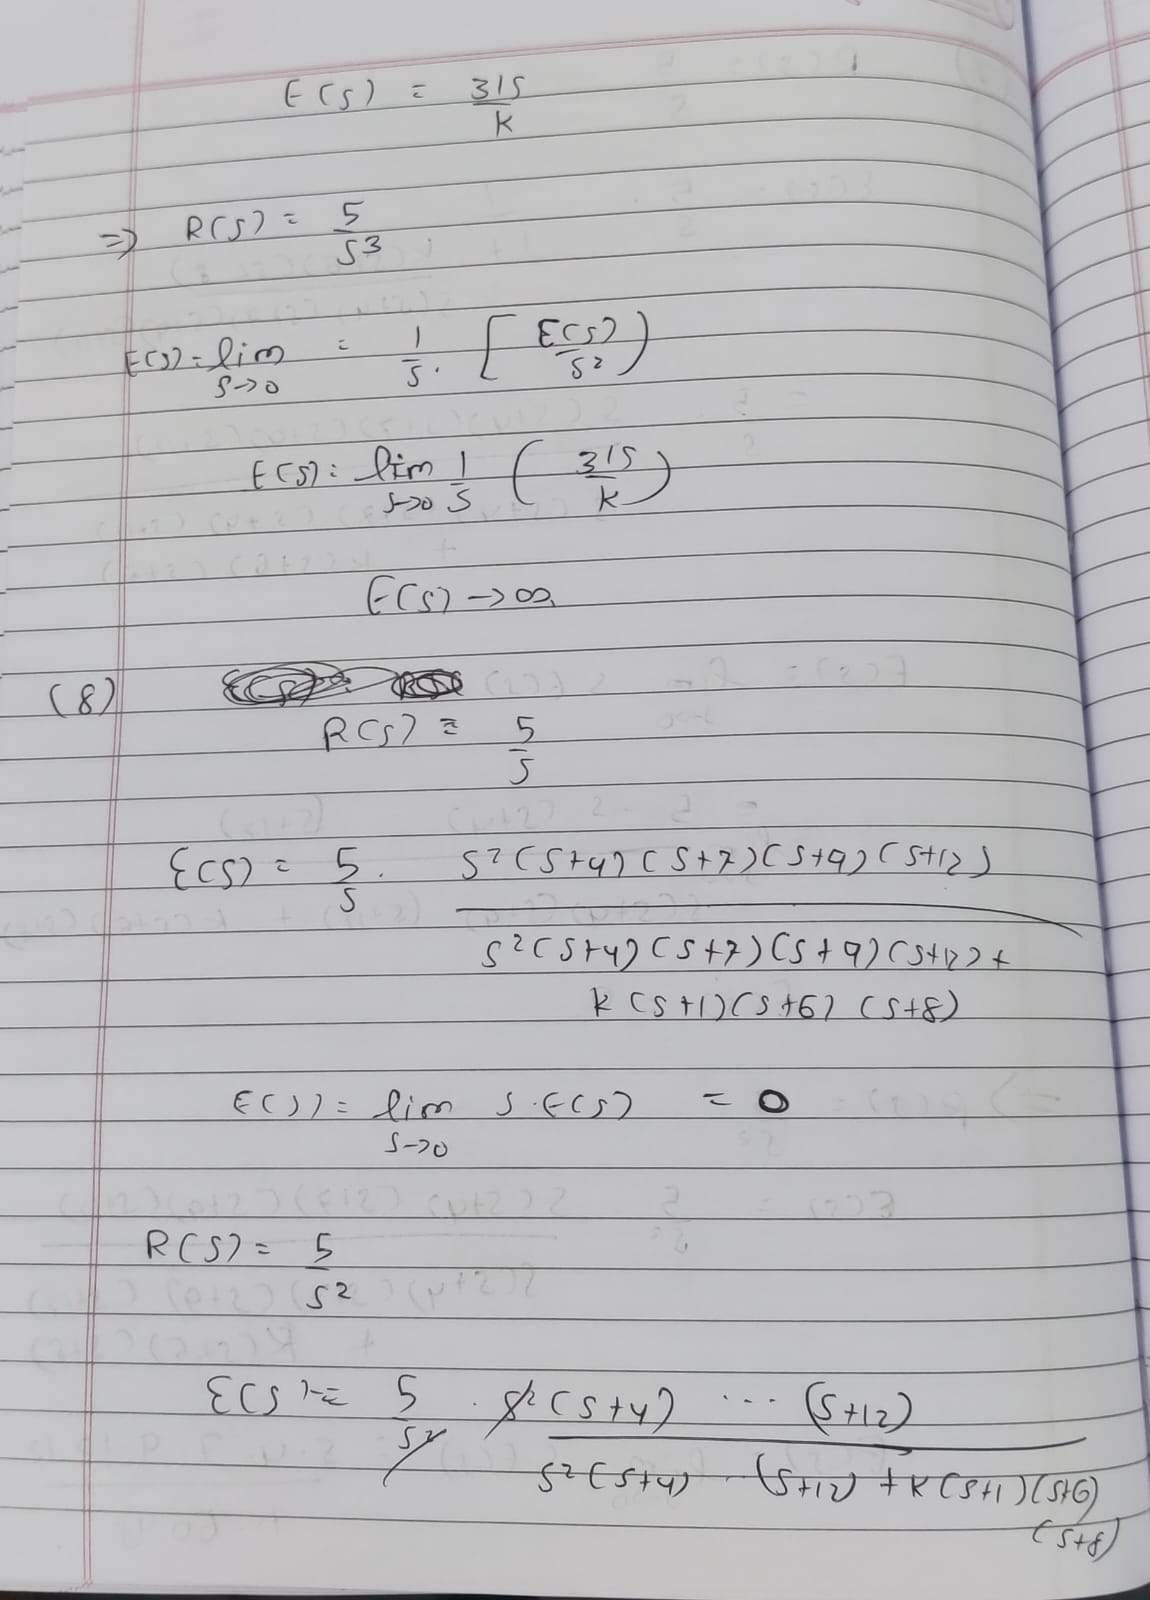 E(s) = 315/k
=> R(s) = 5/s3
E(s) = lim s->0 = 1/s . [ E(s)/s2 )
E(s) = lim s->0 1/s ( 315/k )
E(s) -> ∞
(8)
R(s) = 5/s
E(s) = 5/s . s2(s+4)(s+7)(s+9)(s+12)
s2(s+4)(s+7)(s+9)(s+12)+
k(s+1)(s+6)(s+8)
E(s) = lim s->0 s.E(s) = 0
R(s) = 5/s2
E(s) = 5/s2 . s2(s+4) ... (s+12)
s2(s+4) .. (s+12) + k(s+1)(s+6)
(s+8)